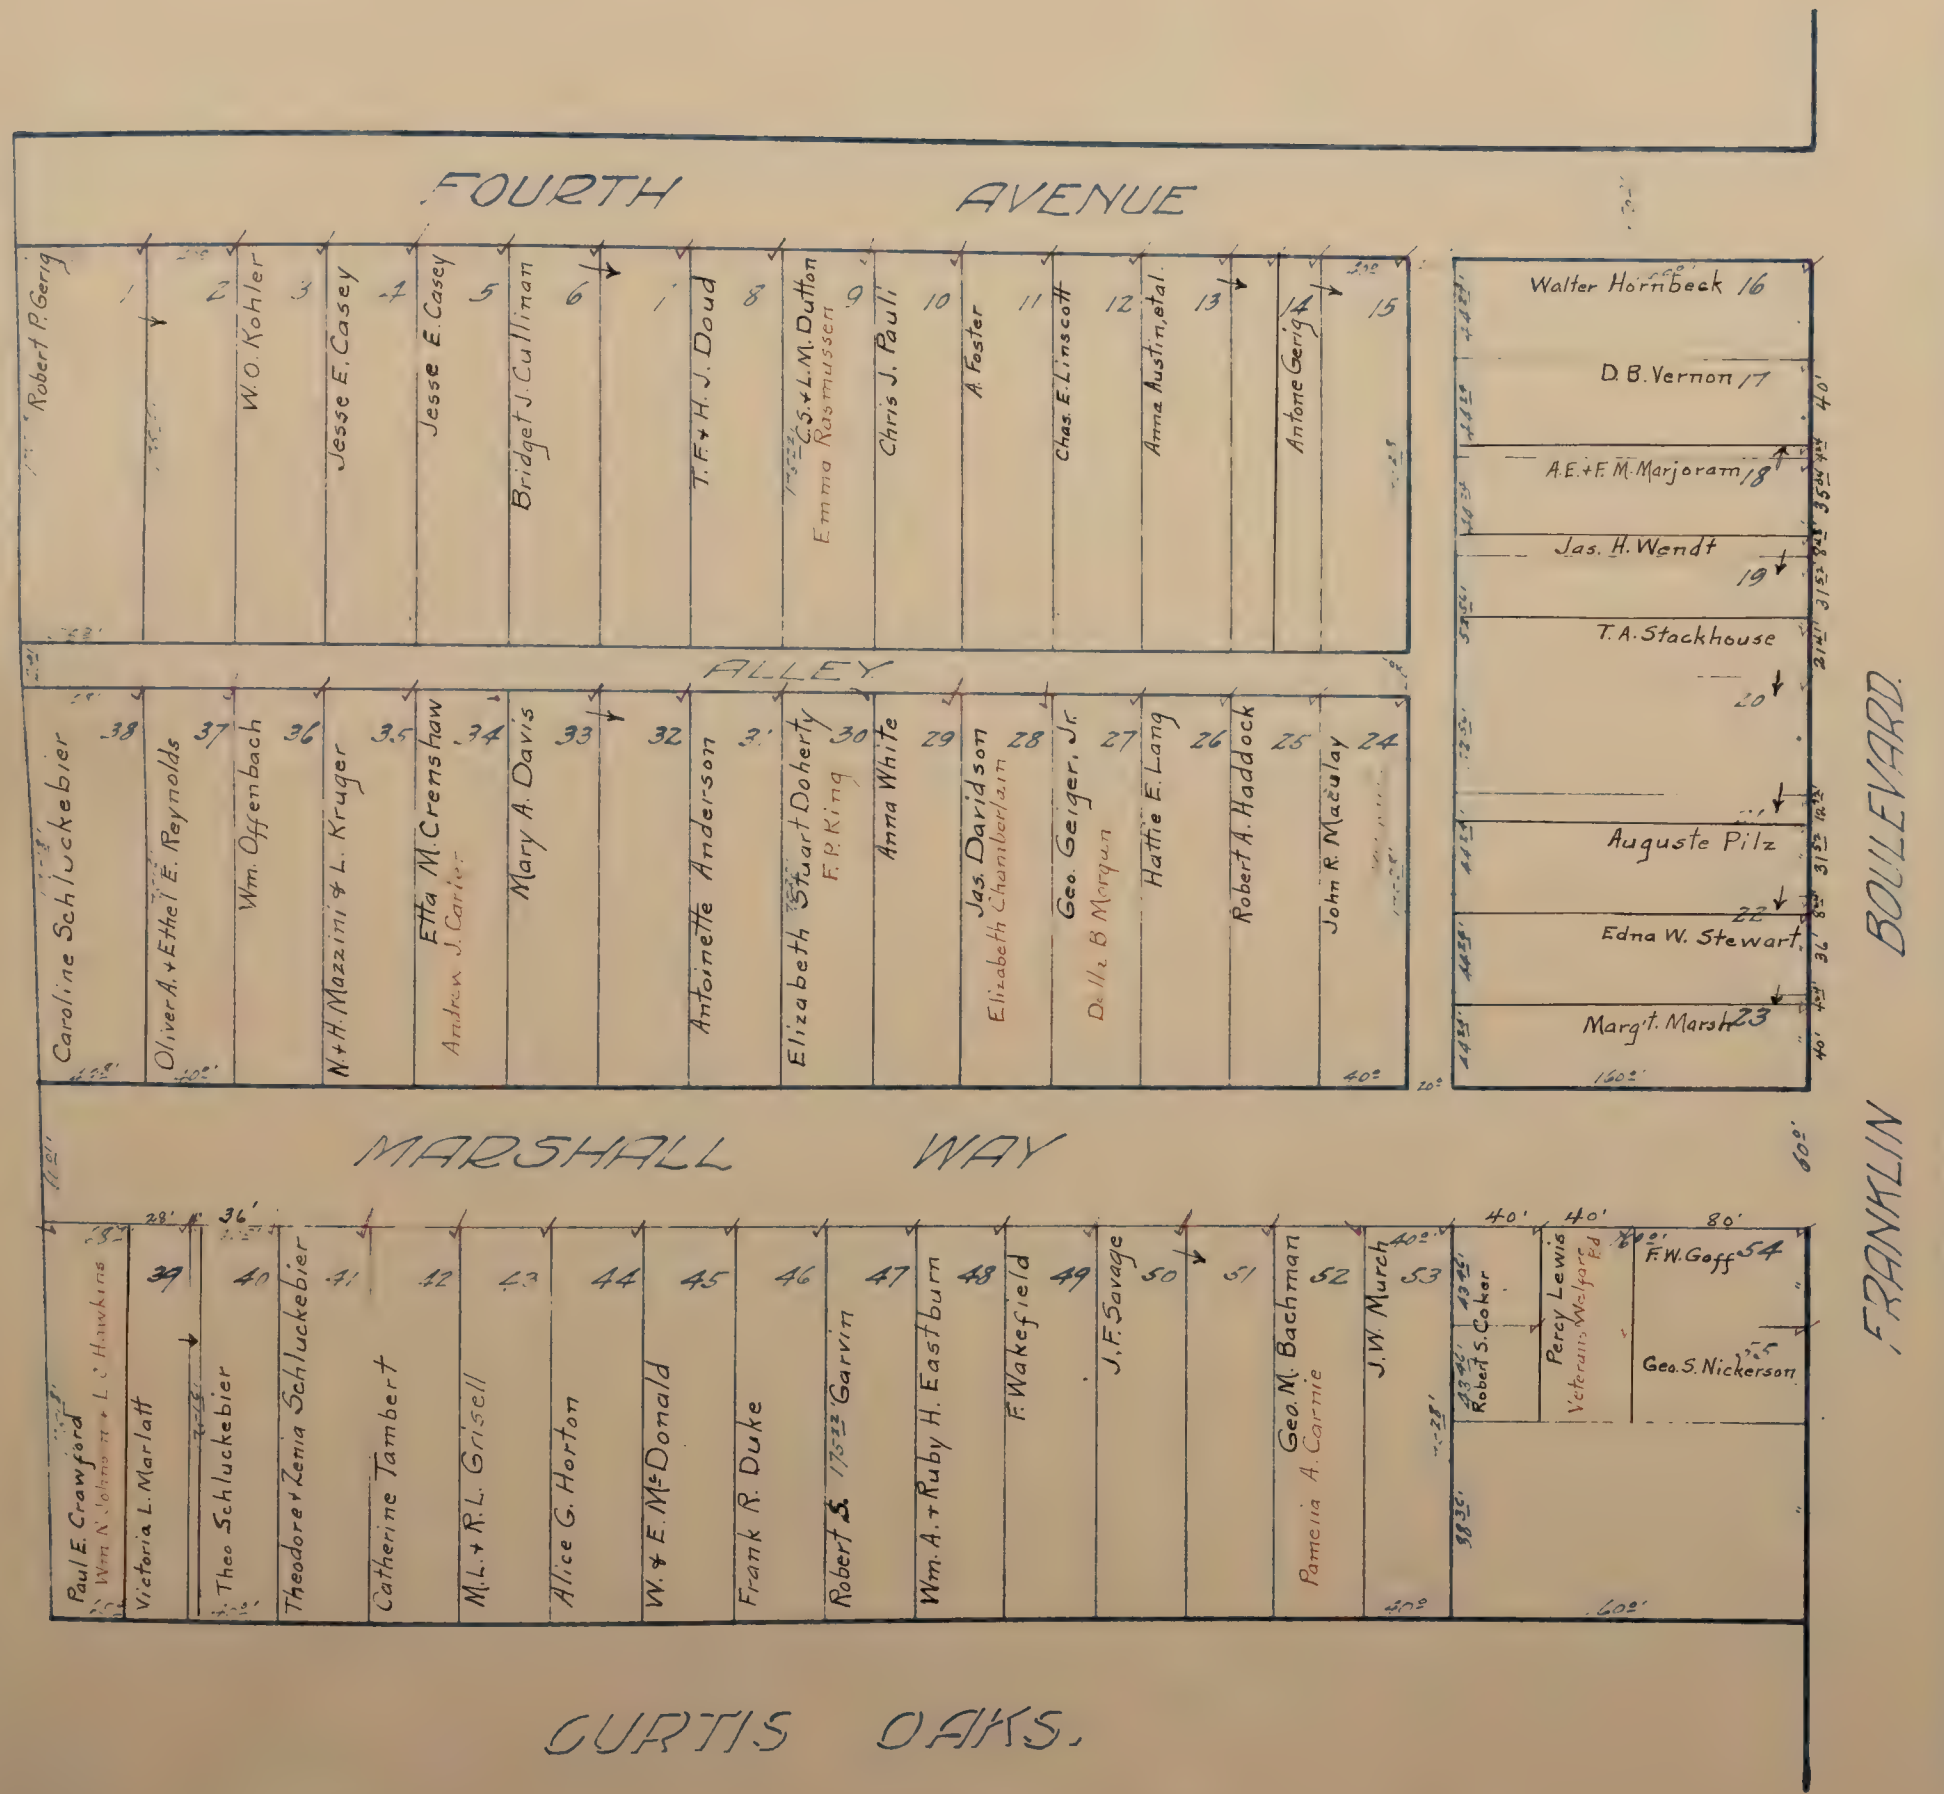 FOURTH AVENUE
Robert P. Gerig
1
2
W. O. Kohler
3
Jesse E. Casey
4
Jesse E. Casey
5
Bridget J. Cullinan
6
T. F. + H. J. Doud
8
C. S. + L. M. Dutton
Emma Rasmussen
9
Chris J. Pauli
10
A. Foster
11
Chas. E. Linscott
12
Anna Austin, et al.
13
14
Antone Gerig
15
Walter Hornbeck 16
D. B. Vernon 17
40'
A. E. + F. M. Marjoram 18
Jas. H. Wendt
19
T. A. Stackhouse
20
Auguste Pilz
22
Edna W. Stewart
36'
Marg't. Marsh 23
40'
160º'
ALLEY
38
Caroline Schluckebier
37
Oliver A. + Ethel E. Reynolds
36
Wm. Offenbach
35
N. + H. Mazzini & L. Kruger
34
Etta M. Crenshaw
Andrew J. Carier
33
Mary A. Davis
32
Antoinette Anderson
30
Elizabeth Stuart Doherty
F. P. King
29
Anna White
28
Jas. Davidson
Elizabeth Chamberlain
27
Geo. Geiger, Jr.
Della B Morgan
26
Hattie E. Lang
25
Robert A. Haddock
24
John R. Maculay
40º
20º
MARSHALL WAY
60º'
BOULEVARD.
FRANKLIN
28'
36'
40'
40'
80'
Paul E. Crawford
Hawkins
39
Victoria L. Marlatt
40
Theo Schluckebier
41
Theodore & Zenia Schluckebier
42
Catherine Tambert
43
M. L. + R. L. Grisell
44
Alice G. Horton
45
W. & E. McDonald
46
Frank R. Duke
47
Robert S. Garvin
48
Wm. A. + Ruby H. Eastburn
49
F. Wakefield
50
J. F. Savage
51
52
Geo. M. Bachman
Pamelia A. Carnie
53
J. W. Murch
40º'
Robert S. Coker
Percy Lewis
Veterans Welfare Bd
F. W. Goff 54
55
Geo. S. Nickerson
40º
CURTIS OAKS.